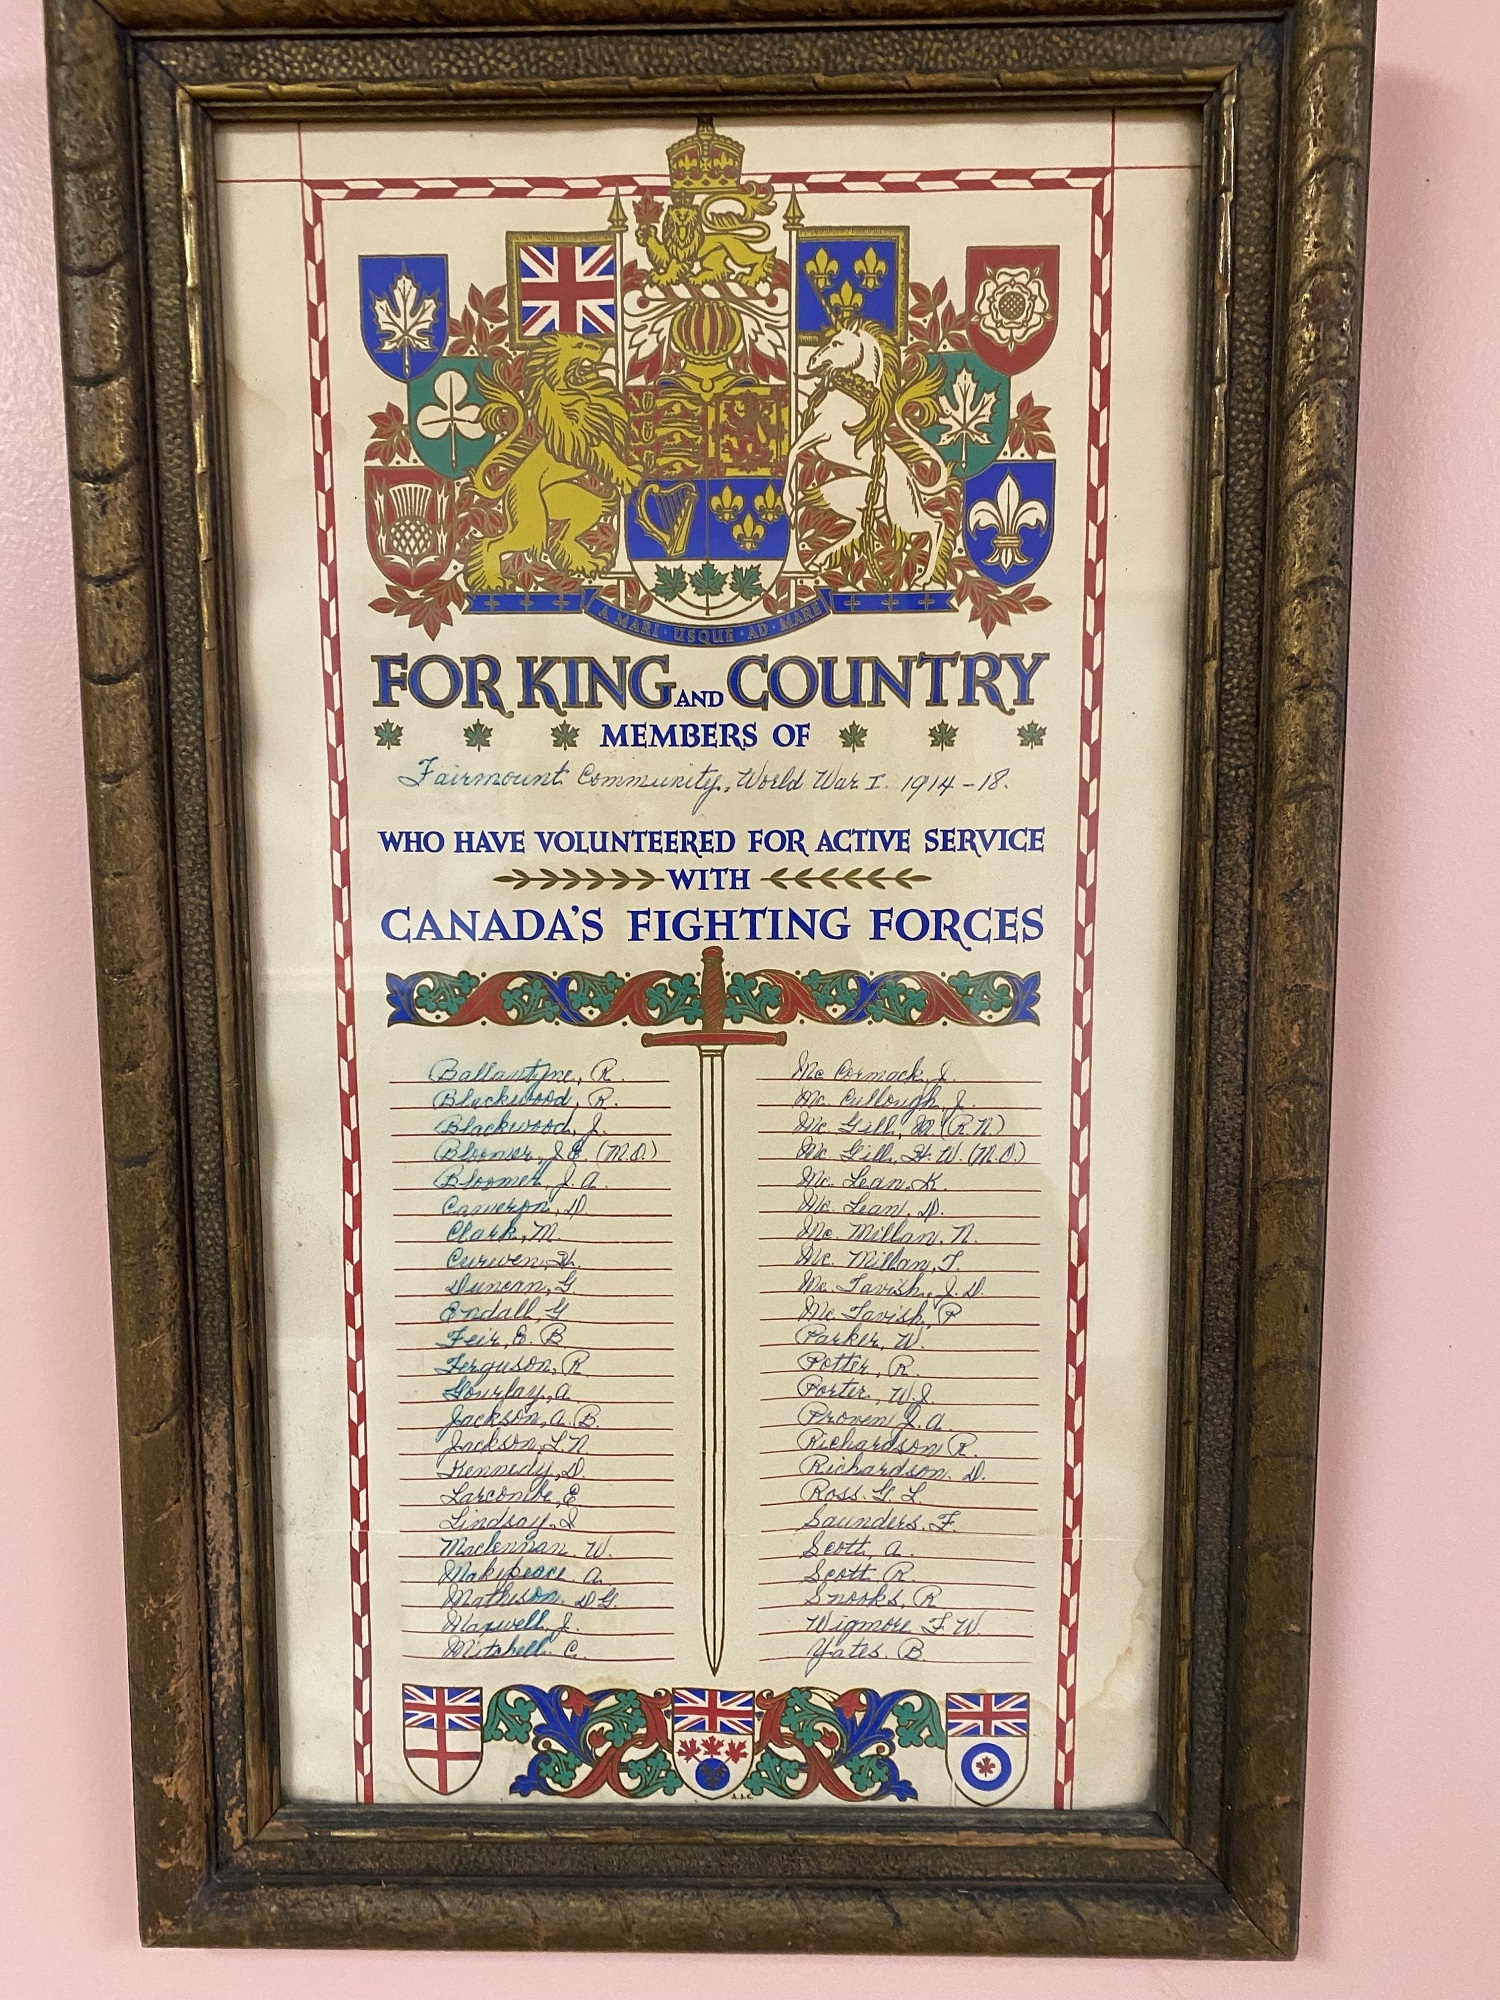 A MARI · USQUE · AD · MARE
FOR KING AND COUNTRY
MEMBERS OF
Fairmount Community, World War I. 1914-18.
WHO HAVE VOLUNTEERED FOR ACTIVE SERVICE
WITH
CANADA'S FIGHTING FORCES
Ballantyne, R.
Blackwood, R.
Blackwood, J.
Bloomer, J E. (M.D.)
Bloomer, J. A.
Cameron, D.
Clark, M.
Curwen, H.
Duncan, G.
Endall, G
Feir, E. B
Ferguson, R
Gourlay, A
Jackson, A. B.
Jackson, L. N.
Kennedy, D.
Larcombe, E
Lindsay, I
Maclennan, W.
Makepeace A.
Matheson. D G.
Maxwell, J.
Mitchell. C.
Mc Cormack, J.
Mc. Cullough, J.
Mc Gill, M. (R. N.)
Mc. Gill, H. W. (M.D.)
Mc. Lean, K.
Mc. Lean, D.
Mc. Millan, N.
Mc. Millan, T.
Mc. Tavish, J. D.
Mc. Tavish, P
Parker, W.
Potter, R.
Porter, W. J.
Proven J. A.
Richardson R.
Richardson. D.
Ross. G. L.
Saunders. F.
Scott, A.
Scott, R.
Snooks, R
Wigmore F. W.
Yates. B.
A.J.C.